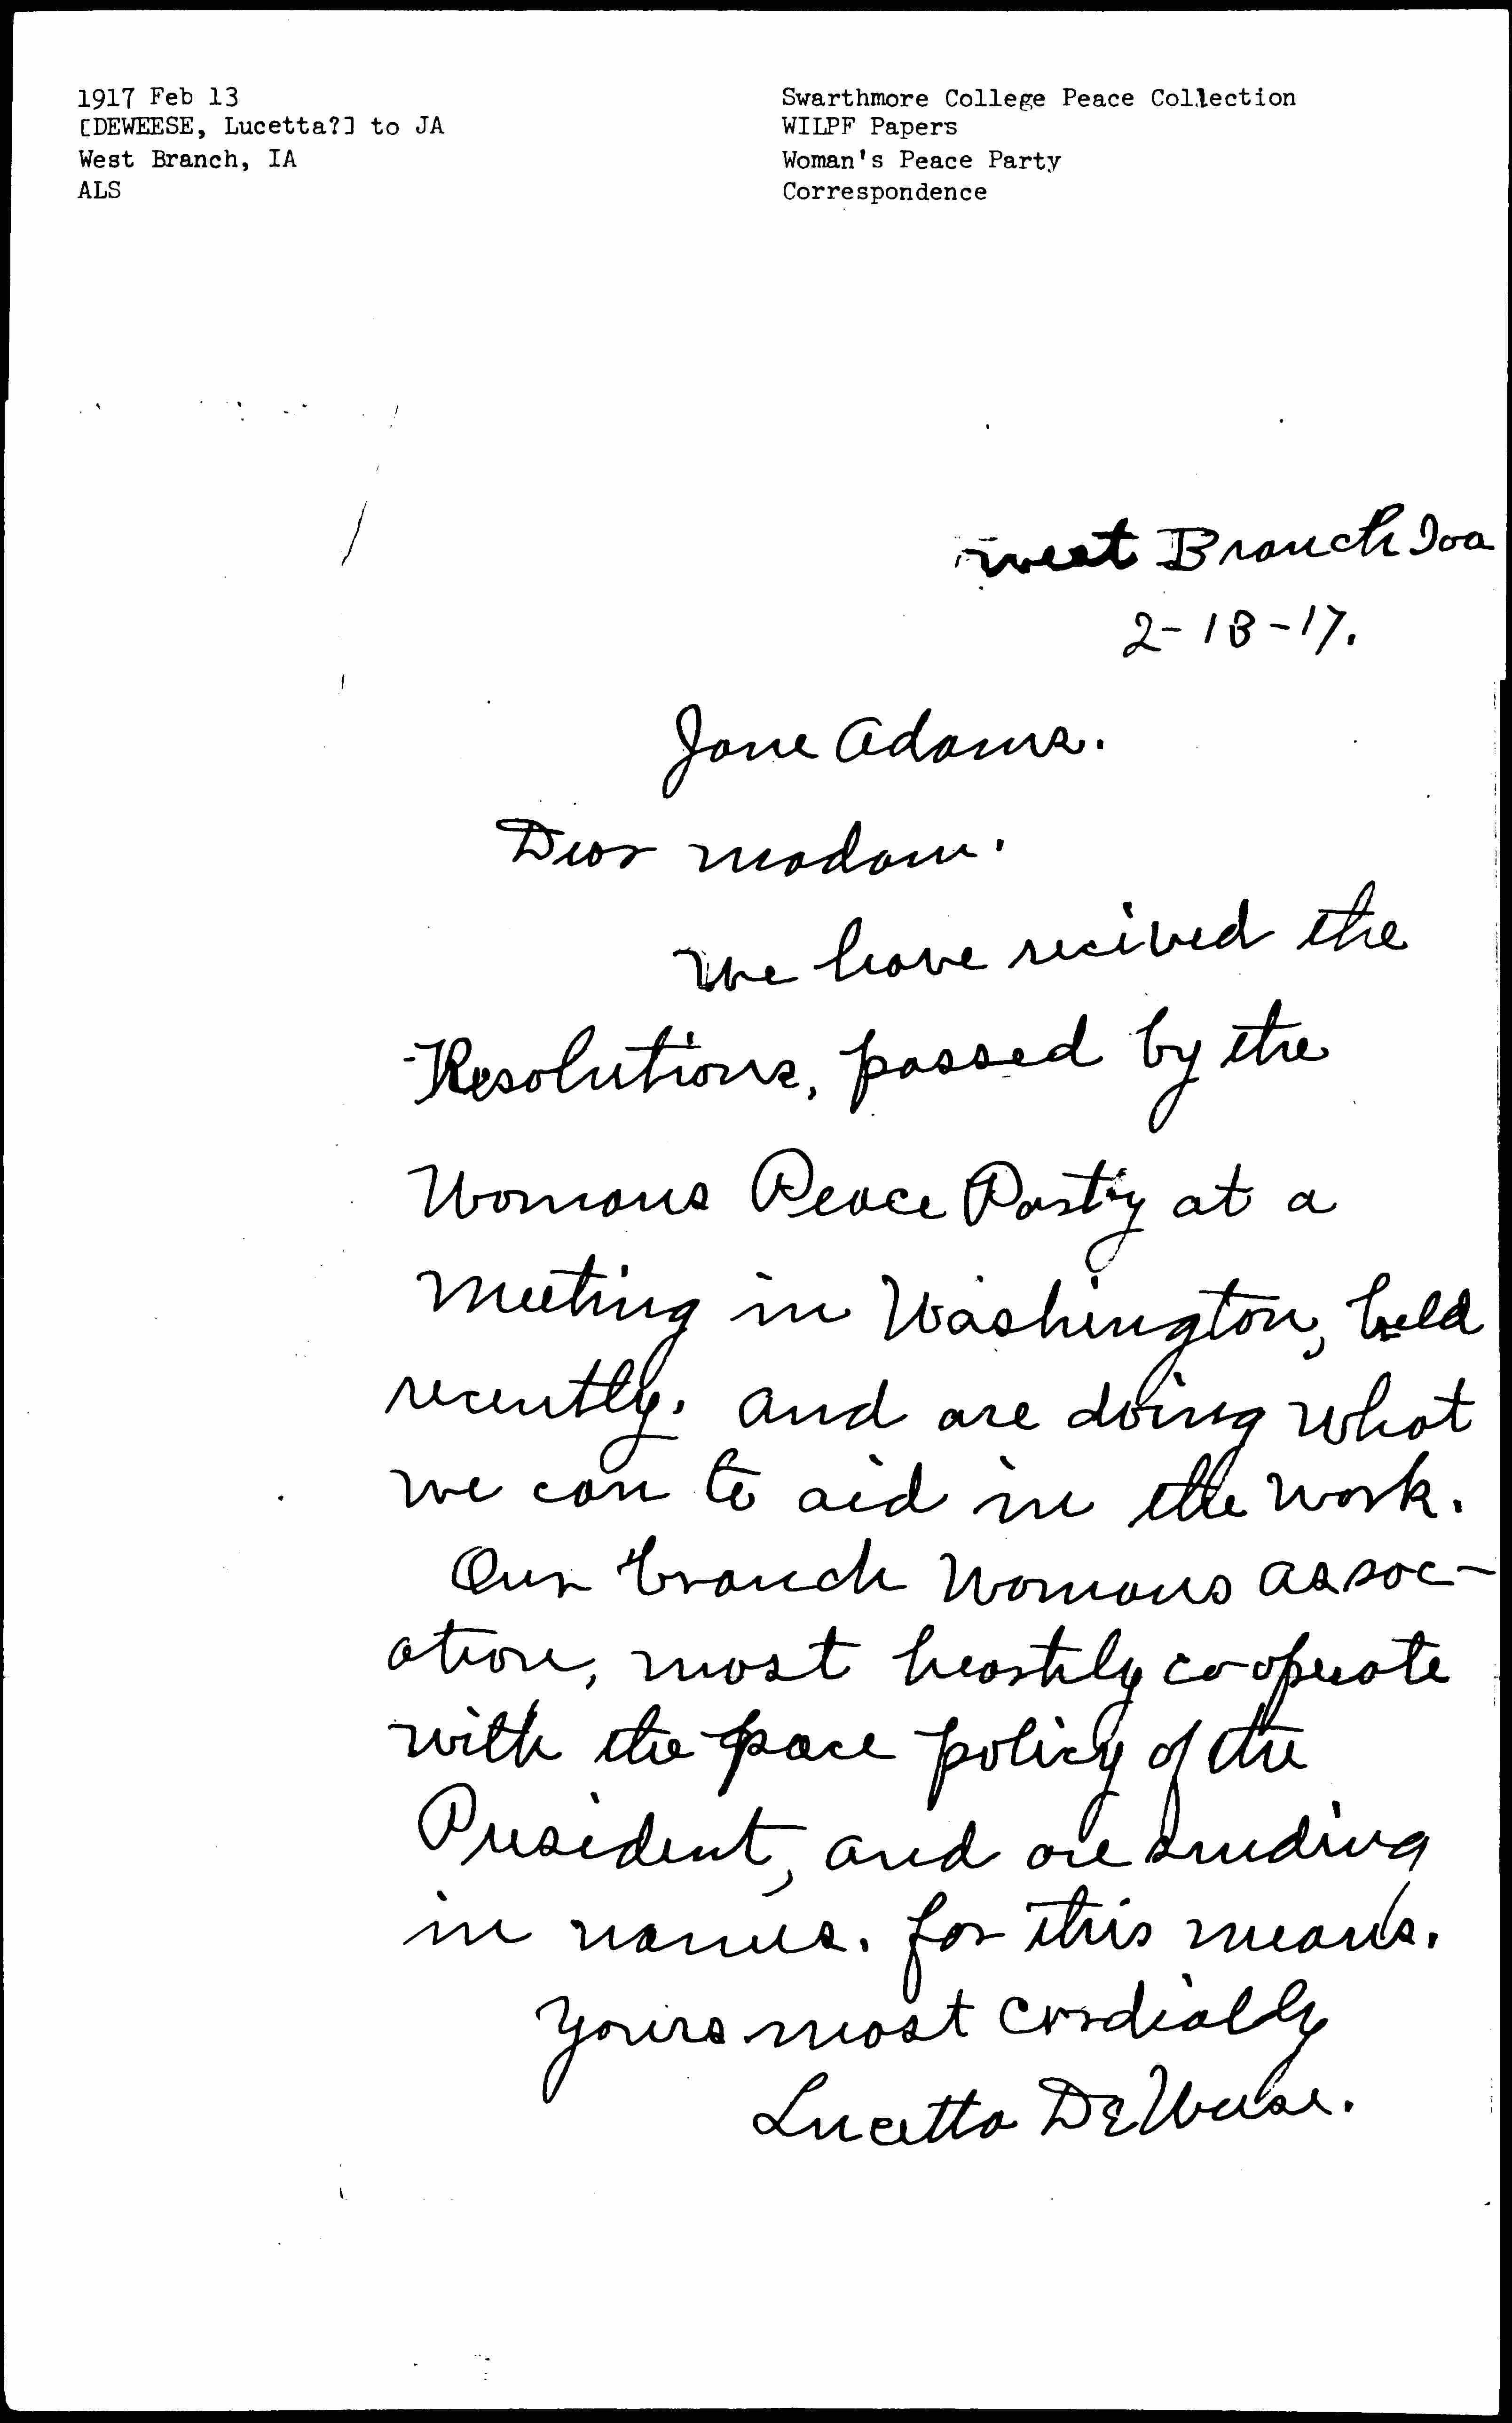 1917 Feb 13
[DEWEESE, Lucetta?] to JA
West Branch, IA
ALS
Swarthmore College Peace Collection
WILPF Papers
Woman's Peace Party
Correspondence
West Branch Ioa
2-13-17.
Jane Adams.
Dear Madam.
We have recived the
Resolutions, passed by the
Womans Peace Party at a
Meeting in Washington, held
recently. and are doing what
we can to aid in the work.
Our branch Womans assoc-
ation, most heartily co-operate
with the peace policy of the
President, and are sending
in names. for this means.
Yours most Cordially
Lucetta DeWeese.